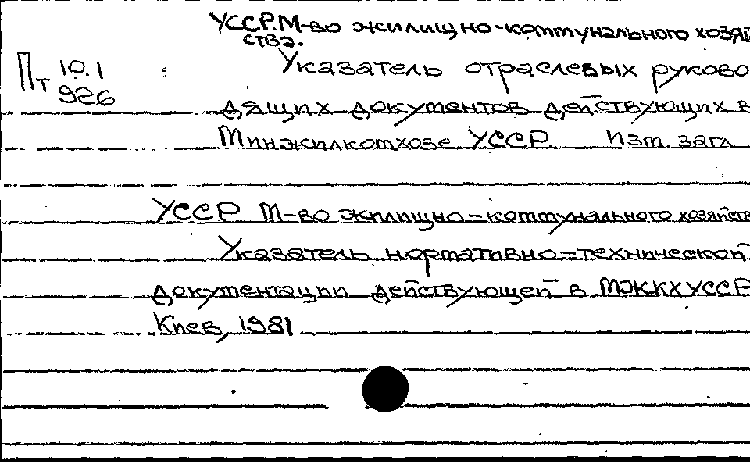 УССР. М-во жилищно-коммунального хозяй
ства.
Пт 10.1
926
Указатель отраслевых руково
дящих документов действующих в
Минжилкомхозе УССР. Изм. загл
УССР М-во жилищно-коммунального хозяйств
Указатель нормативно-технической
документации действующей в МЖКХ УССР
Киев, 1981